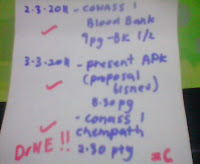 2.3.2011 - conass 1
Blood Bank
9pg - BK 1/2
3.3.2011 - present APK
(proposal
bisnes)
8.30 pg
- conass 1
chempath
2.30 ptg
DONE !!